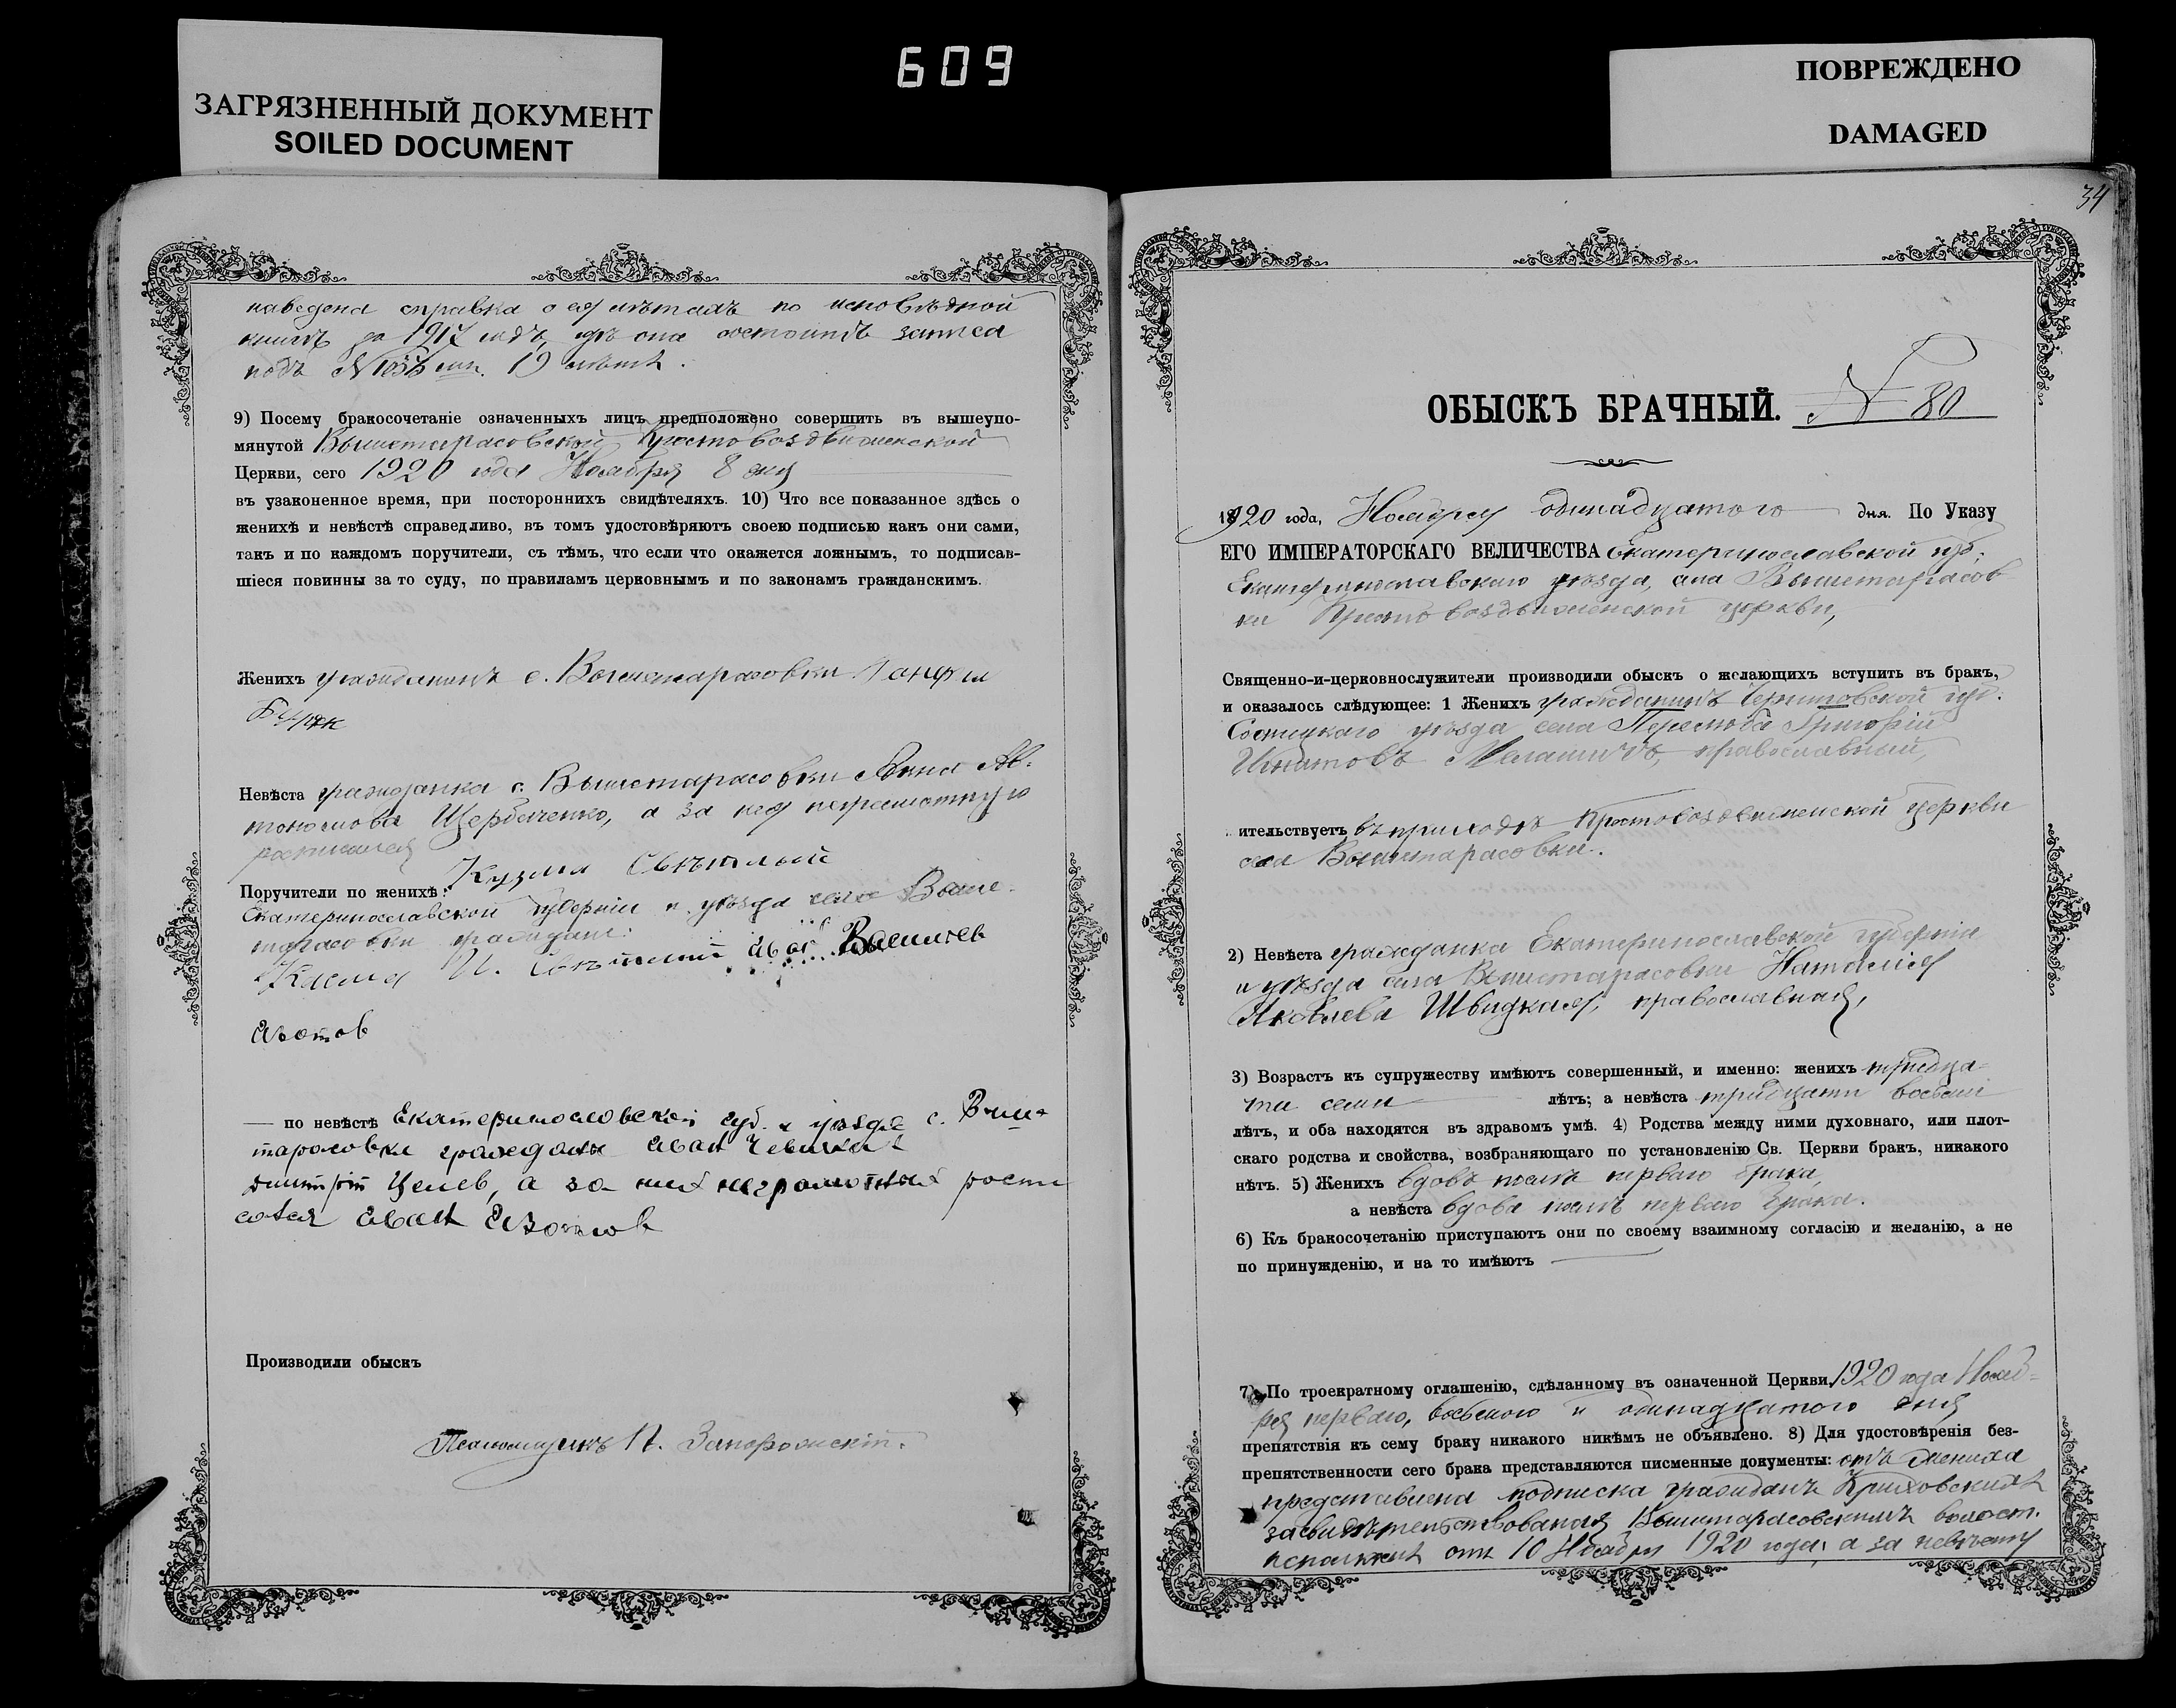 ЗАГРЯЗНЕННЫЙ ДОКУМЕНТ
SOILED DOCUMENT
609
ПОВРЕЖДЕНО
DAMAGED
наведена справка о ея лѣтахъ по исповѣдной
книгѣ за 1917 годъ, гдѣ она состоитъ записа
подъ № 19 лѣтъ.
9) Посему бракосочетаніе означенныхъ лицъ предположено совершить въ вышеупо-
мянутой Вышетарасовской Крестовоздвиженской
Церкви, сего 1920 года Ноября 8 дня
въ узаконенное время, при постороннихъ свидѣтеляхъ. 10) Что все показанное здѣсь о
женихѣ и невѣстѣ справедливо, въ томъ удостовѣряютъ своею подписью какъ они сами,
такъ и по каждомъ поручители, съ тѣмъ, что если что окажется ложнымъ, то подписав-
шіеся повинны за то суду, по правиламъ церковнымъ и по законамъ гражданскимъ.
Женихъ гражданинъ с. Вышетарасовки
Невѣста гражданка с. Вышетарасовки Анна Ав-
тономова Щербаченко, а за нея неграмотную
росписался Кузма Свѣтлый
Поручители по женихѣ:
Екатеринославской губерніи и уѣзда села Выше-
тарасовки граждане:
И. Свѣтлый Иван Васильев
Изотов
— по невѣстѣ Екатеринославской губ. и уѣзда с. Выше
тарасовки граждане Иван
Дмитрій Целев, а за них неграмотных роспи
сался Иван Изотов
Производили обыскъ
Псаломщикъ П. Запорожскій.
34
ОБЫСКЪ БРАЧНЫЙ. № 80
1920 года, Ноября одинадцатого дня. По Указу
ЕГО ИМПЕРАТОРСКАГО ВЕЛИЧЕСТВА Екатеринославской губ.
Екатеринославскаго уѣзда, села Вышетарасов
ки Крестовоздвиженской церкви,
Священно-и-церковнослужители производили обыскъ о желающихъ вступить въ бракъ,
и оказалось слѣдующее: 1 Женихъ гражданинъ Черниговской губ.
Сосницкаго уѣзда села Перелюба Григорій
Игнатовъ православный,
ительствуетъ въ приходѣ Крестовоздвиженской церкви
села Вышетарасовки.
2) Невѣста гражданка Екатеринославской губерніи
и уѣзда села Вышетарасовки Наталія
Яковлева Швидкая, православная,
3) Возрастъ къ супружеству имѣютъ совершенный, и именно: женихъ тридца-
ти семи лѣтъ; а невѣста тридцати восьми
лѣтъ, и оба находятся въ здравомъ умѣ. 4) Родства между ними духовнаго, или плот-
скаго родства и свойства, возбраняющаго по установленію Св. Церкви бракъ, никакого
нѣтъ. 5) Женихъ вдовъ послѣ перваго брака,
а невѣста вдова послѣ перваго брака.
6) Къ бракосочетанію приступаютъ они по своему взаимному согласію и желанію, а не
по принужденію, и на то имѣютъ
7) По троекратному оглашенію, сдѣланному въ означенной Церкви, 1920 года Нояб-
ря перваго, восьмого и одинадцатого дня
препятствія къ сему браку никакого никѣмъ не объявлено. 8) Для удостовѣренія без-
препятственности сего брака представляются писменные документы: отъ жениха
представлена подписка гражданъ
засвидѣтельствованная Вышетарасовскимъ волост.
исполком от 10 Ноября 1920 года; а за невѣсту